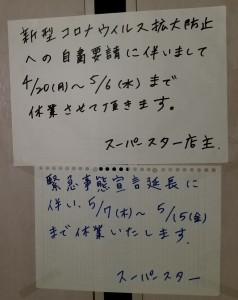 新型コロナウィルス拡大防止
への自粛要請に伴いまして
4/20(月)～5/6(水)まで
休業させて頂きます。
スーパースター店主.
緊急事態宣言延長に
伴い、5/7(木)～5/15(金)
まで休業いたします.
スーパースター